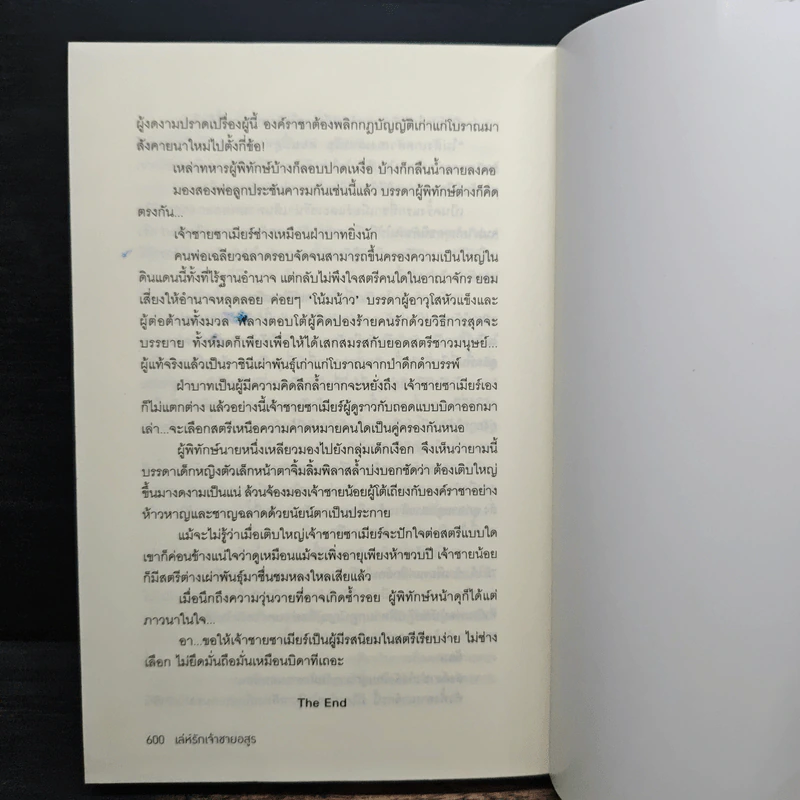 ผู้งดงามปราดเปรื่องผู้นี้ องค์ราชาต้องพลิกกฎบัญญัติเก่าแก่โบราณมา
สังคายนาใหม่ไปตั้งกี่ข้อ!
เหล่าทหารผู้พิทักษ์บ้างก็ลอบปาดเหงื่อ บ้างก็กลืนน้ำลายลงคอ
มองสองพ่อลูกประชันคารมกันเช่นนี้แล้ว บรรดาผู้พิทักษ์ต่างก็คิด
ตรงกัน...
เจ้าชายซาเมียร์ช่างเหมือนฝ่าบาทยิ่งนัก
คนพ่อเฉลียวฉลาดรอบจัดจนสามารถขึ้นครองความเป็นใหญ่ใน
ดินแดนนี้ทั้งที่ไร้ฐานอำนาจ แต่กลับไม่พึงใจสตรีคนใดในอาณาจักร ยอม
เสี่ยงให้อำนาจหลุดลอย ค่อยๆ ‘โน้มน้าว’ บรรดาผู้อาวุโสหัวแข็งและ
ผู้ต่อต้านทั้งมวล พลางตอบโต้ผู้คิดปองร้ายคนรักด้วยวิธีการสุดจะ
บรรยาย ทั้งหมดก็เพียงเพื่อให้ได้เสกสมรสกับยอดสตรีชาวมนุษย์...
ผู้แท้จริงแล้วเป็นราชินีเผ่าพันธุ์เก่าแก่โบราณจากป่าดึกดำบรรพ์
ฝ่าบาทเป็นผู้มีความคิดลึกล้ำยากจะหยั่งถึง เจ้าชายซาเมียร์เอง
ก็ไม่แตกต่าง แล้วอย่างนี้เจ้าชายซาเมียร์ผู้ดูราวกับถอดแบบบิดาออกมา
เล่า...จะเลือกสตรีเหนือความคาดหมายคนใดเป็นคู่ครองกันหนอ
ผู้พิทักษ์นายหนึ่งเหลียวมองไปยังกลุ่มเด็กเงือก จึงเห็นว่ายามนี้
บรรดาเด็กหญิงตัวเล็กหน้าตาจิ้มลิ้มพิลาสล้ำบ่งบอกชัดว่า ต้องเติบใหญ่
ขึ้นมางดงามเป็นแน่ ล้วนจ้องมองเจ้าชายน้อยผู้โต้เถียงกับองค์ราชาอย่าง
ห้าวหาญและชาญฉลาดด้วยนัยน์ตาเป็นประกาย
แม้จะไม่รู้ว่าเมื่อเติบใหญ่เจ้าชายซาเมียร์จะปักใจต่อสตรีแบบใด
เขาก็ค่อนข้างแน่ใจว่าดูเหมือนแม้จะเพิ่งอายุเพียงห้าขวบปี เจ้าชายน้อย
ก็มีสตรีต่างเผ่าพันธุ์มาชื่นชมหลงใหลเสียแล้ว
เมื่อนึกถึงความวุ่นวายที่อาจเกิดซ้ำรอย ผู้พิทักษ์หน้าดุก็ได้แต่
ภาวนาในใจ...
อา...ขอให้เจ้าชายซาเมียร์เป็นผู้มีรสนิยมในสตรีเรียบง่าย ไม่ช่าง
เลือก ไม่ยึดมั่นถือมั่นเหมือนบิดาทีเถอะ
The End
600 เล่ห์รักเจ้าชายอสูร